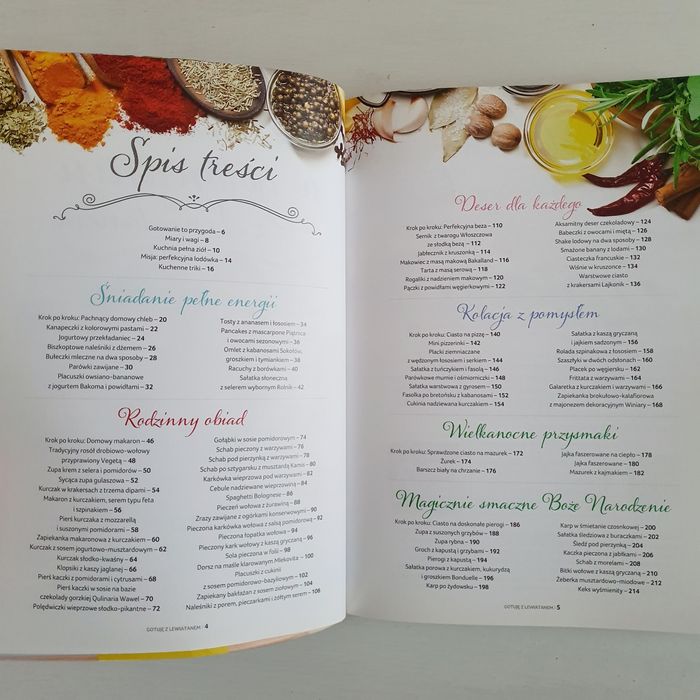 Spis treści
Gotowanie to przygoda – 6
Miary i wagi – 8
Kuchnia pełna ziół – 10
Misja: perfekcyjna lodówka – 14
Kuchenne triki – 16
Śniadanie pełne energii
Krok po kroku: Pachnący domowy chleb – 20
Kanapeczki z kolorowymi pastami – 22
Jogurtowy przekładaniec – 24
Biszkoptowe naleśniki z dżemem – 26
Bułeczki mleczne na dwa sposoby – 28
Parówki zawijane – 30
Placuszki owsiano-bananowe
z jogurtem Bakoma i powidłami – 32
Tosty z ananasem i łososiem – 34
Pancakes z macarpone Piątnica
i owocami sezonowymi – 36
Omlet z kabanosami Sokołów,
groszkiem i tymiankiem – 38
Racuchy z borówkami – 40
Sałatka słoneczna
z selerem wybornym Rolnik – 42
Rodzinny obiad
Krok po kroku: Domowy makaron – 46
Tradycyjny rosół drobiowo-wołowy
przyprawiony Vegetą – 48
Zupa krem z selera i pomidorów – 50
Sycąca zupa gulaszowa – 52
Kurczak w krakersach z trzema dipami – 54
Makaron z kurczakiem, serem typu feta
i szpinakiem – 56
Piersi kurczaka z mozzarellą
i suszonymi pomidorami – 58
Zapiekanka makaronowa z kurczakiem – 60
Kurczak w sosie jogurtowo-musztardowym – 62
Kurczak słodko-kwaśny – 64
Klopsiki z kaszy jaglanej – 66
Pierś kaczki z pomidorami i cytrusami – 68
Piersi kaczki w sosie na bazie
czekolady gorzkiej Qulinaria Wawel – 70
Polędwiczki wieprzowe słodko-pikantne – 72
Gołąbki w sosie pomidorowym – 74
Schab pieczony z warzywami – 76
Schab pod pierzynką z warzywami – 78
Schab po sztygarsku z musztardą Kamis – 80
Karkówka wieprzowa pod warzywami – 82
Cebule nadziewane wieprzowiną – 84
Spaghetti Bolognese – 86
Pieczeń wołowa z żurawiną – 88
Zrazy zawijane z ogórkami konserwowymi – 90
Pieczona karkówka wołowa z salsą pomidorową – 92
Pieczona łopatka wołowa – 94
Pieczony kark wołowy z kaszą gryczaną – 96
Sola pieczona w folii – 98
Dorsz na maśle klarowanym Mlekovita – 100
Placuszki z cukinii
z sosem pomidorowo-bazyliowym – 102
Zapiekany bakłażan z sosem ziołowym – 104
Naleśniki z porem, pieczarkami i żółtym serem – 106
GOTUJĘ Z LEWIATANEM | 4
Deser dla każdego
Krok po kroku: Perfekcyjna beza – 110
Sernik z twarogu Włoszczowa
ze słodką bezą – 112
Jabłecznik z kruszonką – 114
Makowiec z masą makową Bakalland – 116
Tarta z masą serową – 118
Rogaliki z nadzieniem makowym – 120
Pączki z powidłami węgierkowymi – 122
Aksamitny deser czekoladowy – 124
Babeczki z owocami i miętą – 126
Shake lodowy na dwa sposoby – 128
Smażone banany z lodami – 130
Ciasteczka francuskie – 132
Wiśnie w kruszonce – 134
Warstwowe ciasto
z krakersami Lajkonik – 136
Kolacja z pomysłem
Krok po kroku: Ciasto na pizzę – 140
Mini pizzerinki – 142
Placki ziemniaczane
z wędzonym łososiem i serkiem – 144
Sałatka z tuńczykiem i fasolą – 146
Parówkowe murnie i ośmiorniczki – 148
Sałatka warstwowa z gyrosem – 150
Fasolka po bretońsku z kabanosami – 152
Cukinia nadziewana kurczakiem – 154
Sałatka z kaszą gryczaną
i jajkiem sadzonym – 156
Rolada szpinakowa z łososiem – 158
Szaszłyki w dwóch odsłonach – 160
Placek po węgiersku – 162
Frittata z warzywami – 164
Galaretka z kurczakiem i warzywami – 166
Zapiekanka brokułowo-kalafiorowa
z majonezem dekoracyjnym Winiary – 168
Wielkanocne przysmaki
Krok po kroku: Sprawdzone ciasto na mazurek – 172
Żurek – 174
Barszcz biały na chrzanie – 176
Jajka faszerowane na ciepło – 178
Jajka faszerowane – 180
Mazurek z kajmakiem – 182
Magicznie smaczne Boże Narodzenie
Krok po kroku: Ciasto na doskonałe pierogi – 186
Zupa z suszonych grzybów – 188
Zupa rybna – 190
Groch z kapustą i grzybami – 192
Pierogi z kapustą – 194
Sałatka porowa z kurczakiem, kukurydzą
i groszkiem Bonduelle – 196
Karp po żydowsku – 198
Karp w śmietanie czosnkowej – 200
Sałatka śledziowa z buraczkami – 202
Śledź pod pierzynką – 204
Kaczka pieczona z jabłkami – 206
Schab z morelami – 208
Bitki wołowe z kaszą gryczaną – 210
Żeberka musztardowo-miodowe – 212
Keks wyśmienity – 214
GOTUJĘ Z LEWIATANEM | 5